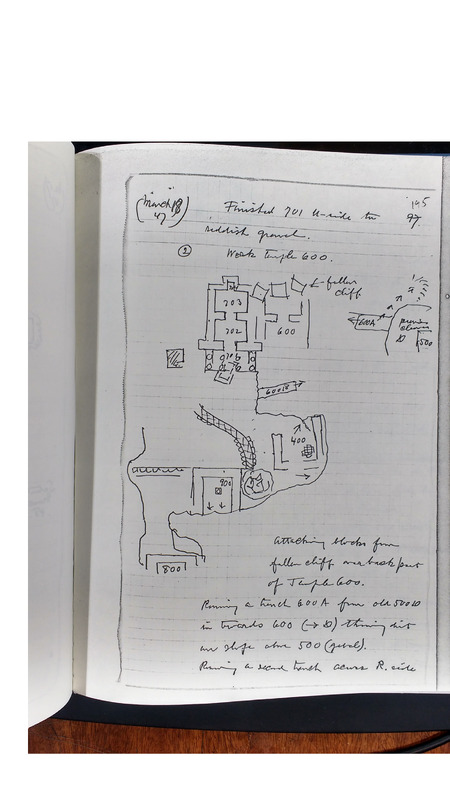 (March 18
47)
145
97.
Finished 701 U-side to
reddish gravel.
②
Work Temple 600.
← fallen
cliff
703
702
600
600A
500
600B
400
900
800
Attacking blocks from
fallen cliff over back part
of Temple 600.
Running a trench 600A from old 500
in towards 600 (→ D)
on slope above 500 (gebel).
Running a second trench across R. side